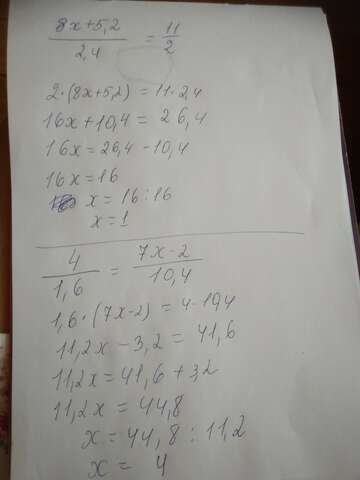 8x+5,2 / 2,4 = 11 / 2
2·(8x+5,2) = 11·2,4
16x+10,4 = 26,4
16x = 26,4 - 10,4
16x = 16
x = 16:16
x = 1
4 / 1,6 = 7x-2 / 10,4
1,6·(7x-2) = 4·10,4
11,2x - 3,2 = 41,6
11,2x = 41,6 + 3,2
11,2x = 44,8
x = 44,8 : 11,2
x = 4